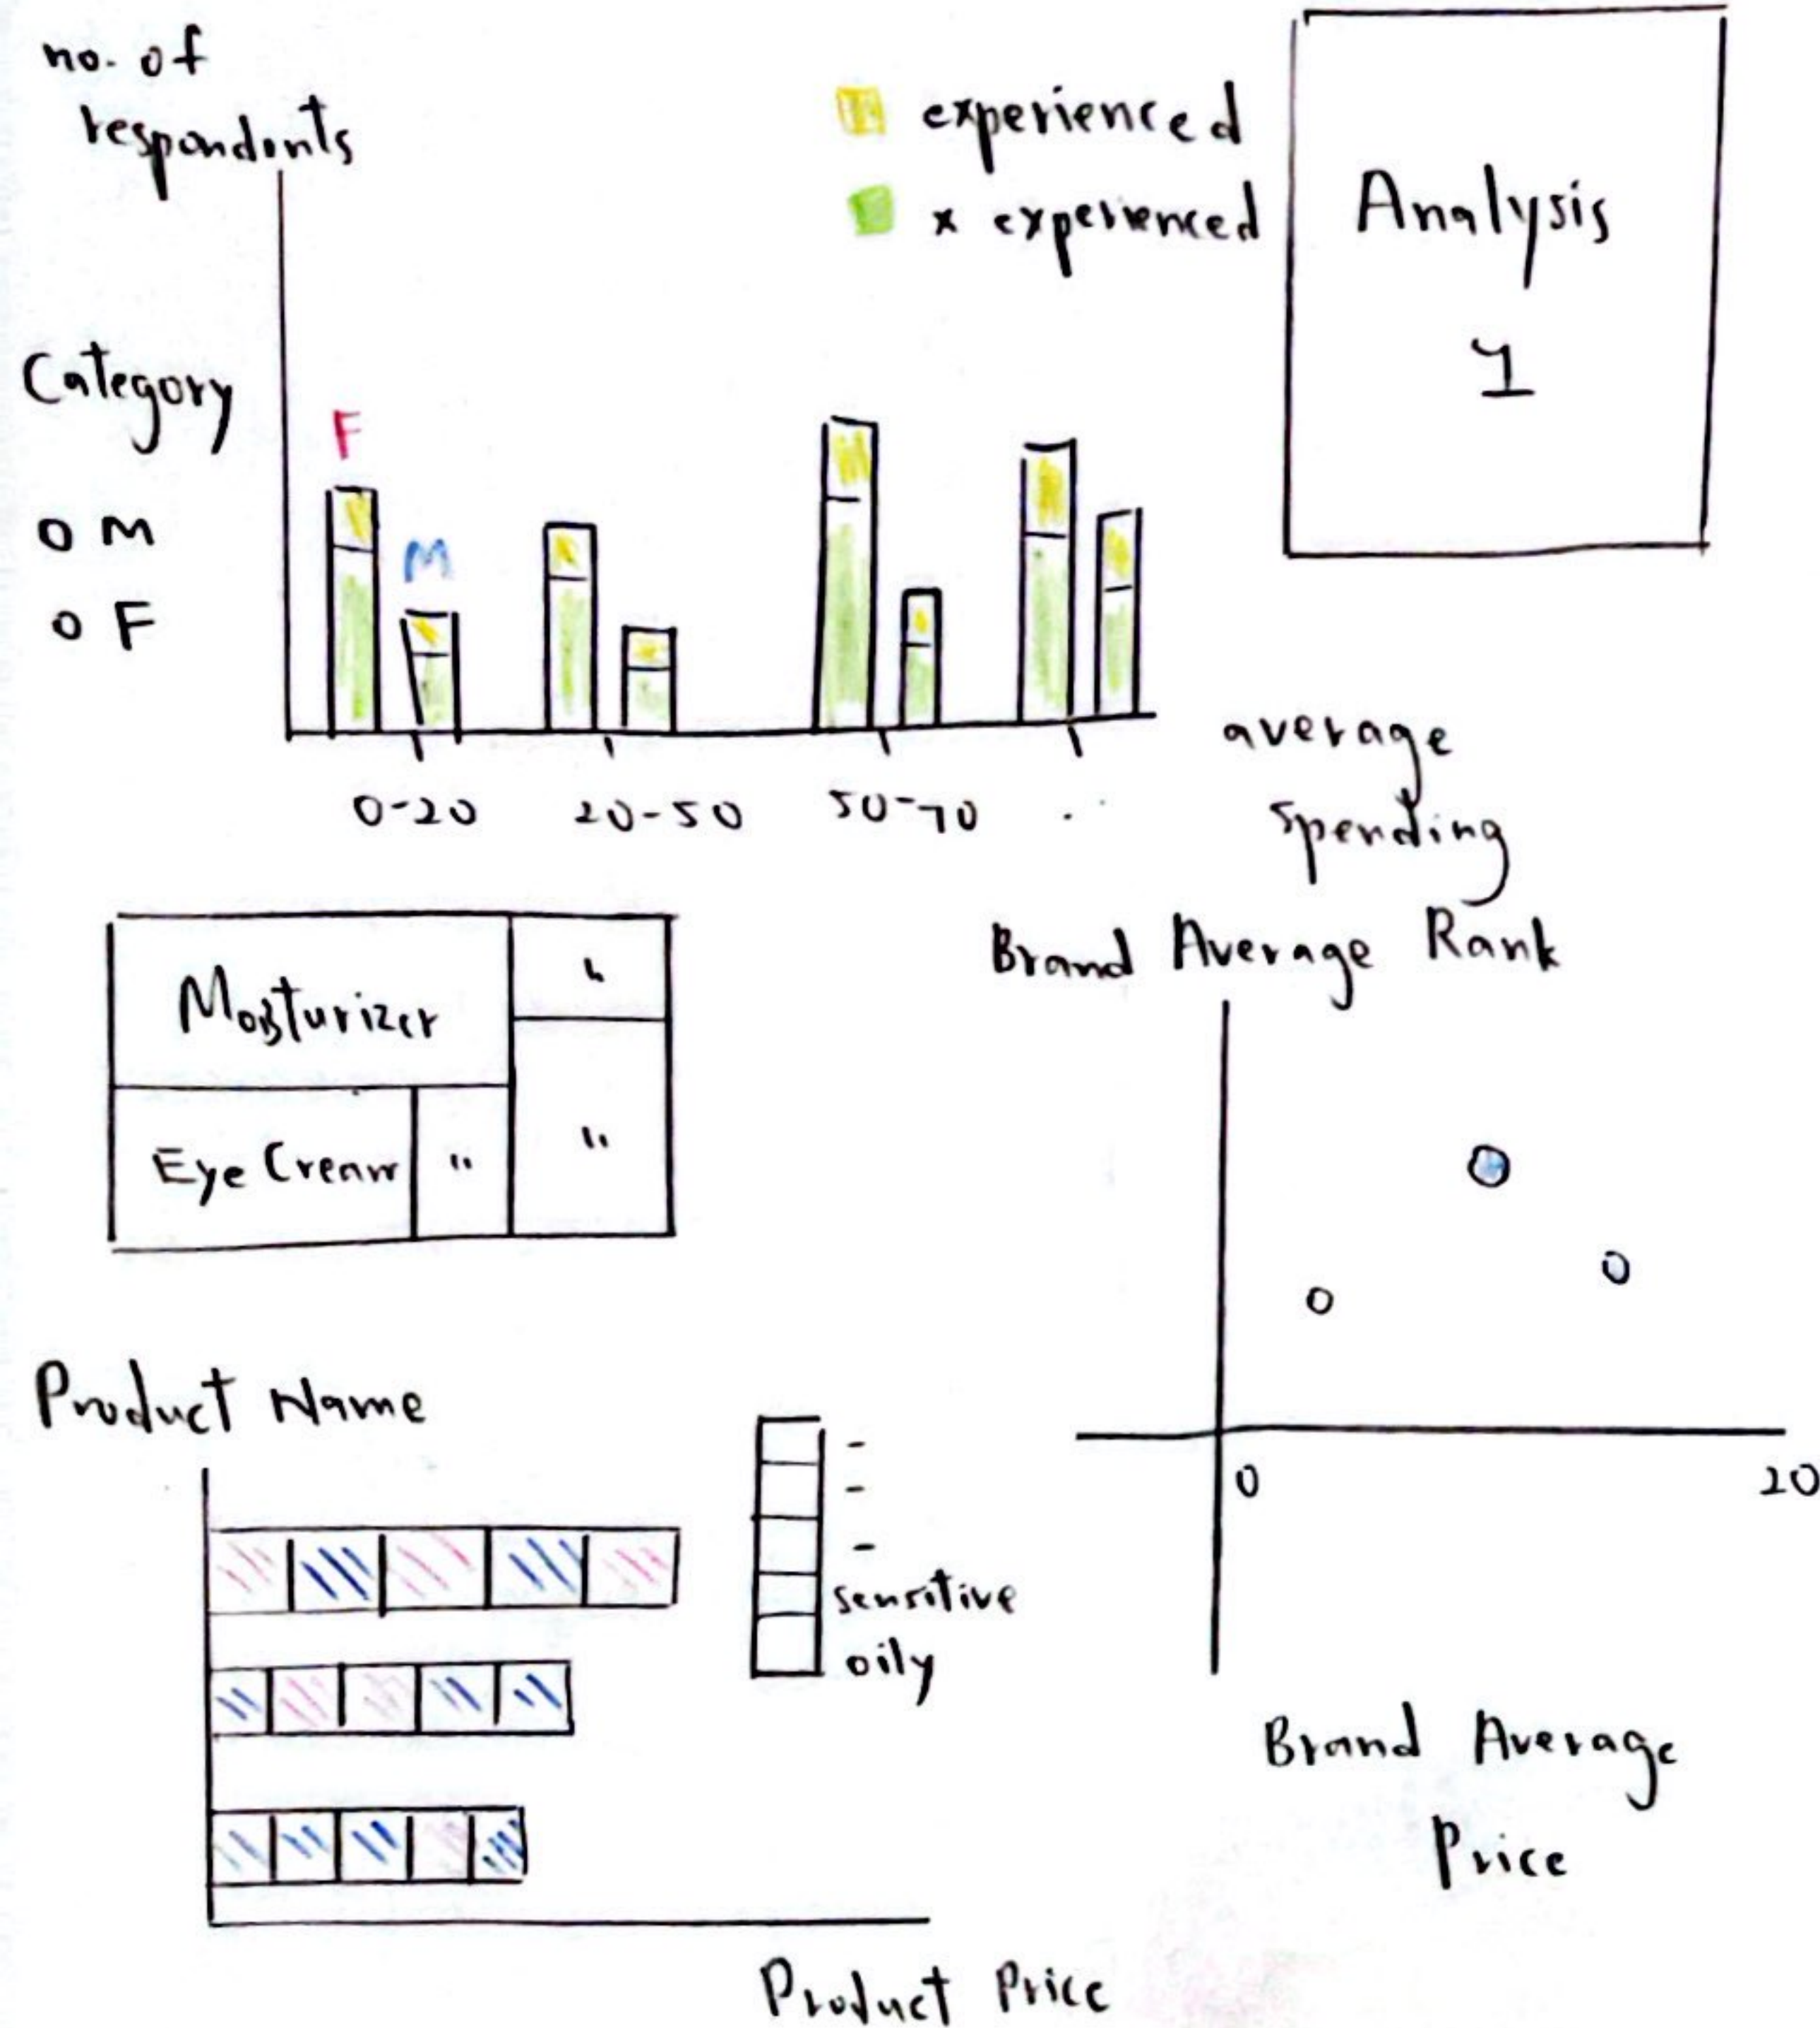 no. of
respondents
experienced
x experienced
Analysis
1
Category
F
M
O M
O F
0-20 20-50 50-70 .
average
spending
Moisturizer
"
Eye Cream
"
"
Brand Average Rank
0 20
Brand Average
Price
Product Name
-
-
-
sensitive
oily
Product Price